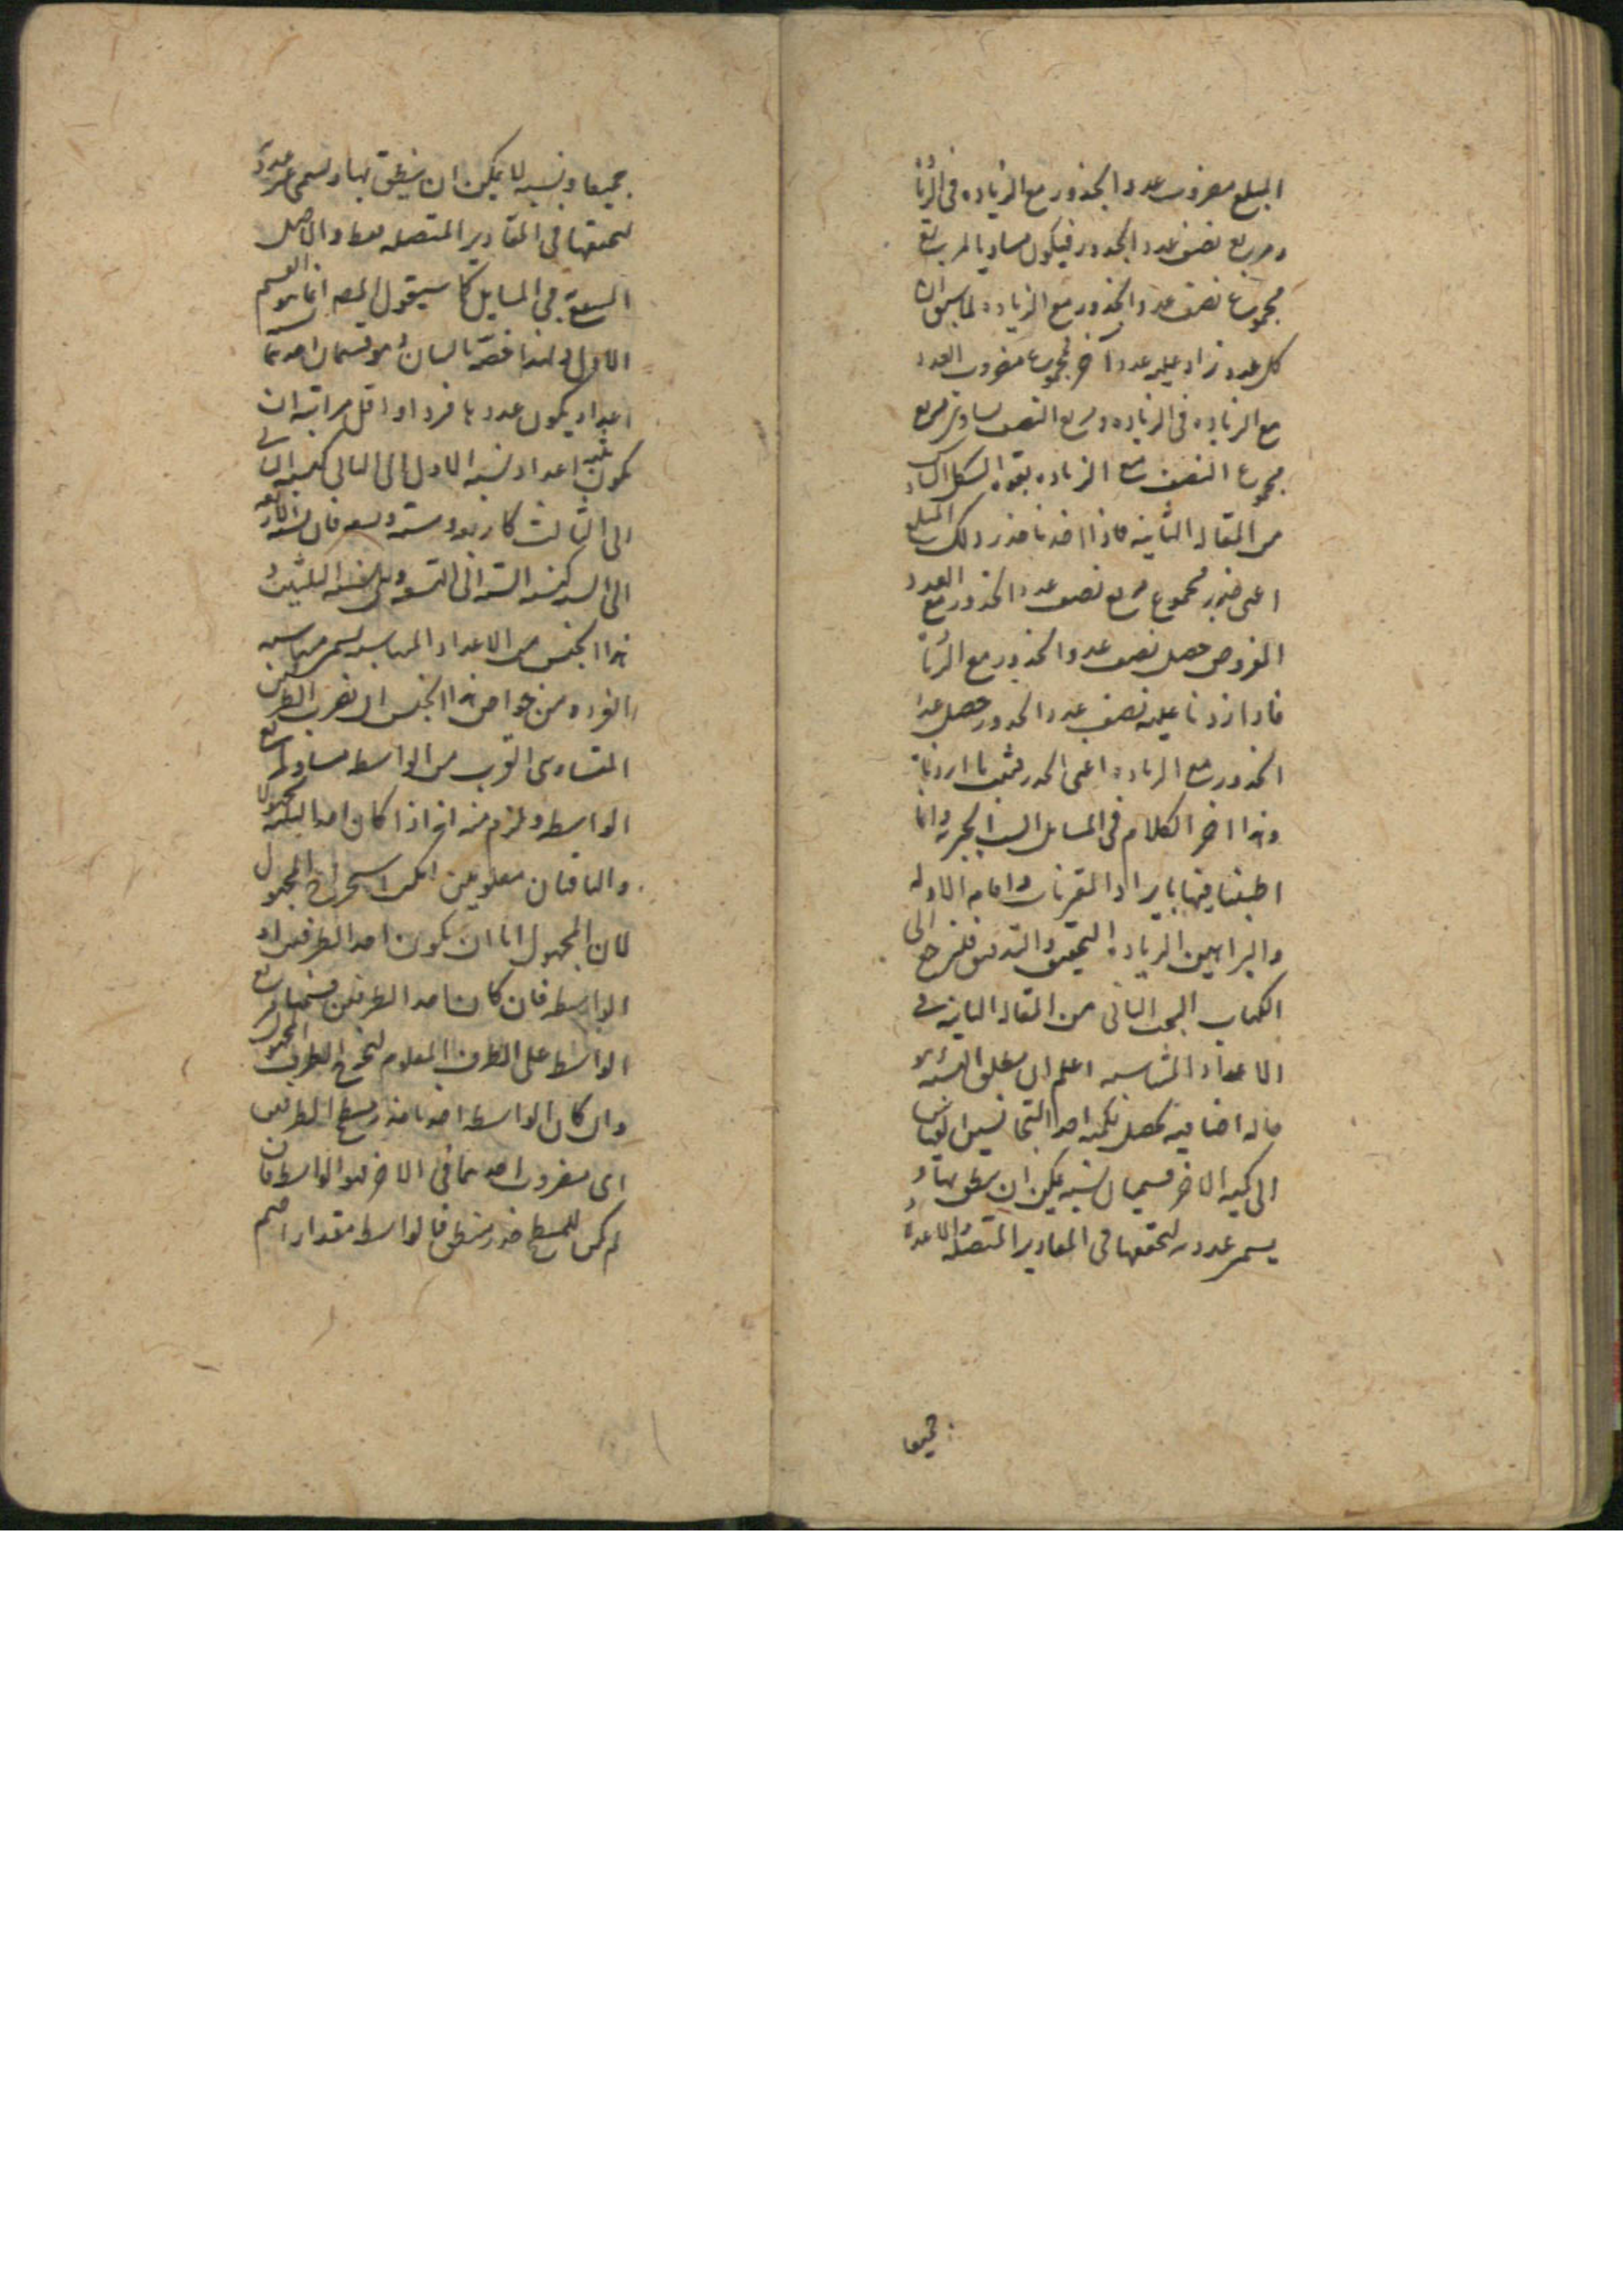 المبلغ مضروب عدد الجذور مع الزيادة في الزيادة
ومربع نصف عدد الجذور فيكون مساويا لمربع
مجموع نصف عدد الجذور مع الزيادة لما سبق ان
كل عدد زاد عليه عدد آخر فمجموع مضروب العدد
مع الزياده في الزياده ومربع النصف يساوي مربع
مجموع النصف مع الزياده بقوة الشكل السادس
من المقالة الثانية فاذا اخذنا جذر ذلك المبلغ
اعنى جذر مجموع مربع نصف عدد الجذور مع العدد
المفروض حصل نصف عدد الجذور مع الزيادة
فاذا زدنا عليه نصف عدد الجذور حصل عدد
الجذور مع الزيادة اعنى الجذر فثبت ما اردناه
وهذا اخر الكلام في المسايل الست الجبرية وانما
اطنبنا فيها بايراد المقربات واقامة الادلة
والبراهين لزيادة التحقيق والتدقيق فلنرجع الى
الكتاب البحث الثاني من المقالة الثانية في
الاعداد المتناسبة اعلم ان مطلق النسبة هو
حالة اضافية تحصل لكمية احد المتجانسين بالقياس
الى كمية الاخر قسيمان نسبة يمكن ان ينطق بها و
يسمى عددية لتحققها في المقادير المتصلة والاعداد
جميعا
جميعا ونسبة لا يمكن ان ينطق بها وتسمى غير عددية
لتحققها في المقادير المتصلة فقط والاصل
في المسايل كما سيقول المص انما هو القسم
الاول ولهذا خصه بالبيان وهو قسمان احدهما
اعداد يكون عددها فردا واقل مراتبه ان
يكون ثلثة اعداد نسبة الاول الى الثاني كنسبة الثاني
الى الثالث كاربعة وستة وتسعة فان نسبة الاربعة
الى الستة كنسبة الستة الى التسعة وهي نسبة الثلثين و
هذا الجنس من الاعداد المتناسبة يسمى متناسبة
الفرد ومن خواص هذا الجنس ان ضرب الطرفين
المتساوى القرب من الواسطة مساو لمربع
الواسطة ويلزم منه انه اذا كان احد الثلثة مجهولا
والباقيان معلومين امكن استخراج المجهول
لان المجهول اما ان يكون احد الطرفين او
الواسطة فان كان احد الطرفين قسمنا مربع
الواسطة على الطرف المعلوم ليخرج الطرف المجهول
وان كان الواسطة اخذنا جذر مسطح الطرفين
اى مضروب احدهما في الاخر فهو الواسطة فان
لم يكن للمسطح جذر منطق فالواسطة مقدار اصم